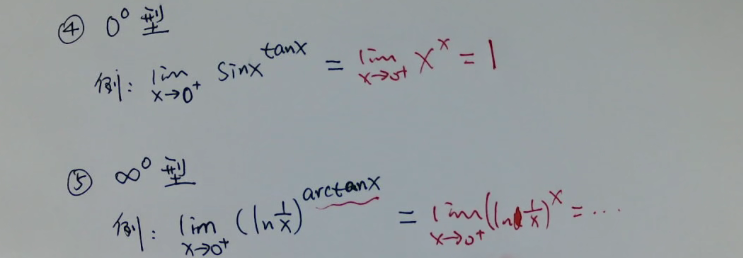 ④ 0⁰ 型
例: lim x→0⁺ sinx^tanx = lim x→0⁺ x^x = 1
⑤ ∞⁰ 型
例: lim x→0⁺ (ln 1/x)^arctanx = lim x→0⁺ (ln 1/x)^x = ...